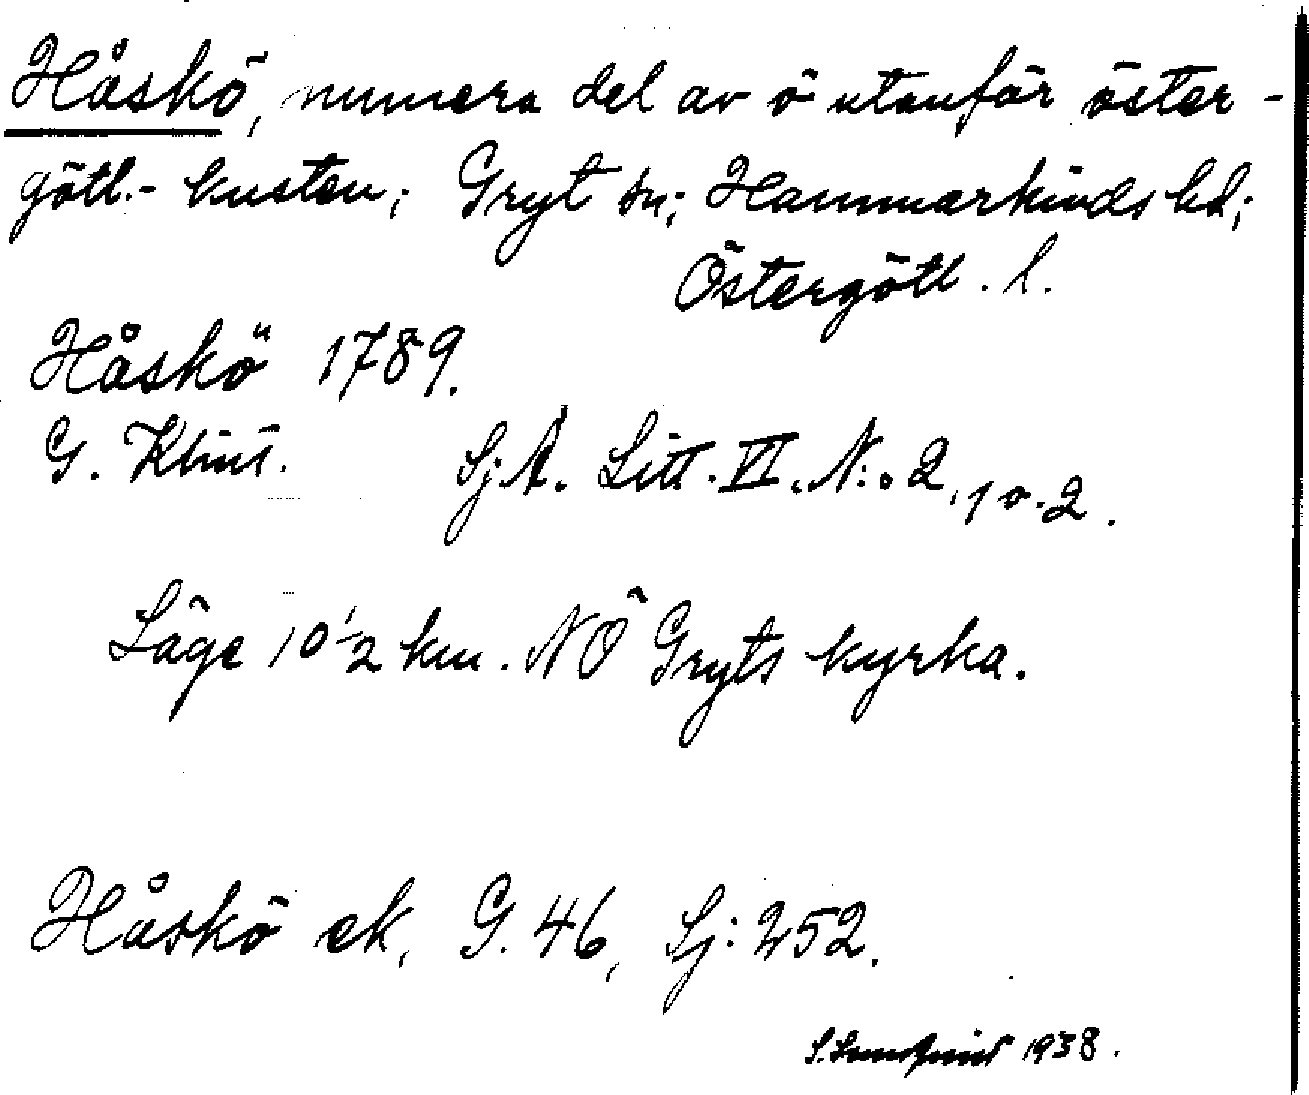 Håskö, numera del av ö utanför öster-
götl.- kusten; Gryt sn; Hammarkinds hd;
Östergötl. l.
Håskö 1789.
G. Klint. Sj.A. Litt. VI. N:o 2, 10.2.
Läge 10 1/2 km. NÖ Gryts kyrka.
Håskö ek, G. 46, Sj: 252.
S. Lundqvist 1938.